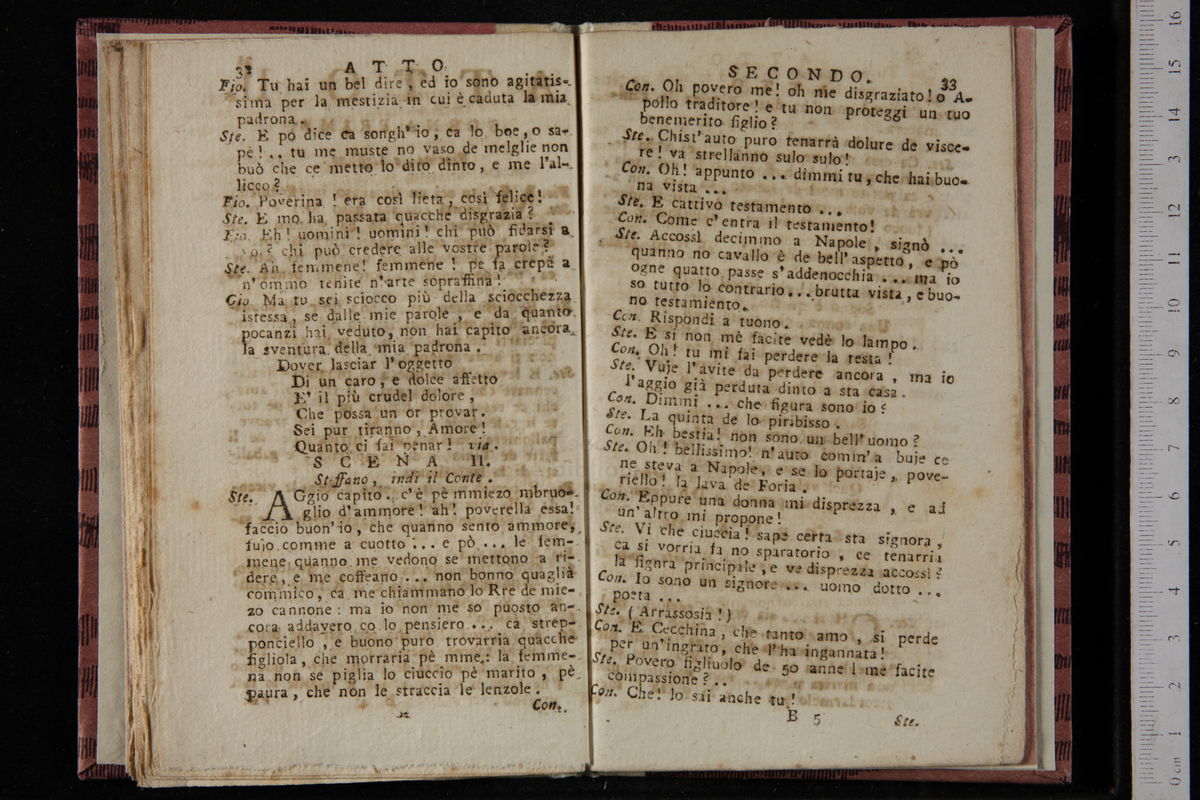 32 ATTO
Fio. Tu hai un bel dire, ed io sono agitatis-
sima per la mestizia in cui è caduta la mia
padrona.
Ste. E pò dice ca songh'io, ca lo boe, o sa-
pè!.. tu me muste no vaso de melglie non
buò che ce metto lo dito dinto, e me l'al-
licco?
Fio. Poverina! era così lieta, così felice!
Ste. E mo ha passata quacche disgrazia?
Fio. Eh! uomini! uomini! chi può fidarsi a
voi? chi può credere alle vostre parole?
Ste. Ah femmene! femmene! pe fa crepà a
n'ommo tenite n'arte sopraffina!
Gio Ma tu sei sciocco più della sciocchezza
istessa, se dalle mie parole, e da quanto
pocanzi hai veduto, non hai capito ancora
la sventura della mia padrona.
Dover lasciar l'oggetto
Di un caro, e dolce affetto
E' il più crudel dolore,
Che possa un cor provar.
Sei pur tiranno, Amore!
Quanto ci fai penar! via.
SCENA II.
Steffano, indi il Conte.
Ste. AGgio capito.. c'è pè mmiezo mbruo-
glio d'ammore! ah! poverella essa!
faccio buon'io, che quanno sento ammore,
fujo comme a cuotto ... e pò ... le fem-
mene quanno me vedono se mettono a ri-
dere, e me coffeano ... non bonno quaglià
commico, ca me chiammano lo Rre de mie-
zo cannone: ma io non me so puosto an-
cora addavero co lo pensiero ... ca strep-
ponciello, e buono puro trovarria quacche
figliola, che morraria pè mme: la femme-
na non se piglia lo ciuccio pè marito, pè
paura, che non le straccia le lenzole.
Con.
SECONDO. 33
Con. Oh povero me! oh me disgraziato! o A-
pollo traditore! e tu non proteggi un tuo
benemerito figlio?
Ste. Chist'auto puro tenarrà dolure de visce-
re! va strellanno sulo sulo!
Con. Oh! appunto ... dimmi tu, che hai buo-
na vista ...
Ste. E cattivo testamento ...
Con. Come c'entra il testamento!
Ste. Accossì decimmo a Napole, signò ...
quanno no cavallo è de bell'aspetto, e pò
ogne quatto passe s'addenocchia ... ma io
so tutto lo contrario... brutta vista, e buo-
no testamiento.
Con. Rispondi a tuono.
Ste. E si non mè facite vedè lo lampo.
Con. Oh! tu mi fai perdere la testa!
Ste. Vuje l'avite da perdere ancora, ma io
l'aggio già perduta dinto a sta casa.
Con. Dimmi ... che figura sono io?
Ste. La quinta de lo piribisso.
Con. Eh bestia! non sono un bell'uomo?
Ste. Oh! bellissimo! n'auto comm'a buje ce
ne steva a Napole, e se lo portaje, pove-
riello! la lava de Foria.
Con. Eppure una donna mi disprezza, e ad
un'altro mi propone!
Ste. Vi che ciuccia! sape certa sta signora,
ca si vorria fa no sparatorio, ce tenarria
la figura principale, e ve disprezza accossì?
Con. Io sono un signore ... uomo dotto ...
poeta ...
Ste. (Arrassosia!)
Con. E Cecchina, che tanto amo, si perde
per un'ingrato, che l'ha ingannata!
Ste. Povero figliuolo de 50 anne! me facite
compassione?..
Con. Che! lo sai anche tu!
B 5 Ste.
0 cm 1 2 3 4 5 6 7 8 9 10 11 12 13 14 15 16